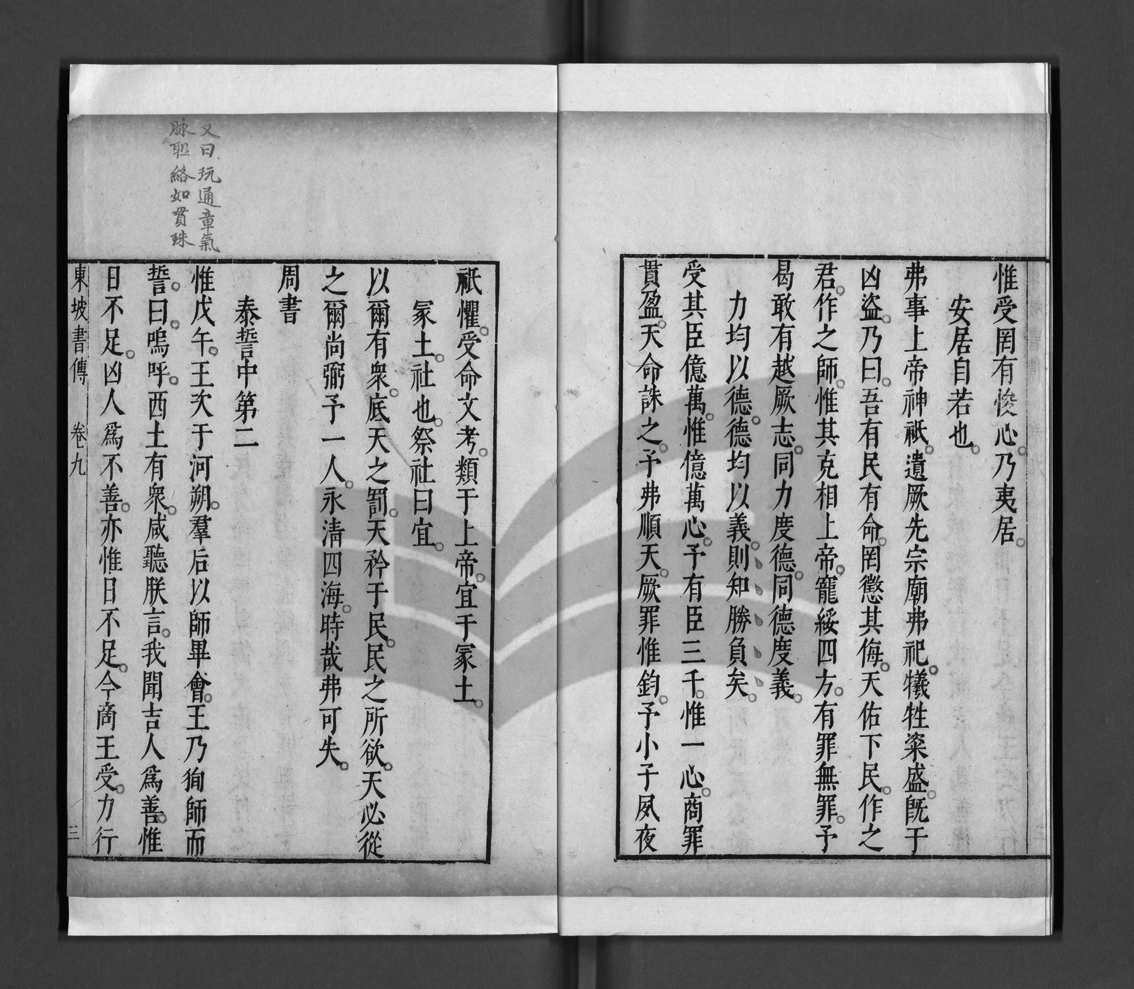 惟受罔有悛心。乃夷居。
安居自若也。
弗事上帝神祇。遺厥先宗廟弗祀。犧牲粢盛。旣于
凶盜。乃曰。吾有民有命。罔懲其侮。天佑下民。作之
君。作之師。惟其克相上帝。寵綏四方。有罪無罪。予
曷敢有越厥志。同力度德。同德度義。
力均以德。德均以義。則知勝負矣。
受其臣億萬。惟億萬心。予有臣三千。惟一心。商罪
貫盈。天命誅之。予弗順天。厥罪惟鈞。予小子夙夜
祇懼。受命文考。類于上帝。宜于冢土。
冢土。社也。祭社曰宜。
以爾有衆。底天之罰。天矜于民。民之所欲。天必從
之爾尚弼予一人。永清四海。時哉弗可失。
周書
泰誓中第二
惟戊午。王次于河朔。羣后以師畢會。王乃徇師而
誓。曰。嗚呼。西土有衆。咸聽朕言。我聞吉人爲善。惟
日不足。凶人爲不善。亦惟日不足。今商王受。力行
東坡書傳 卷九 三
又曰玩通章氣
脉聯絡如貫珠